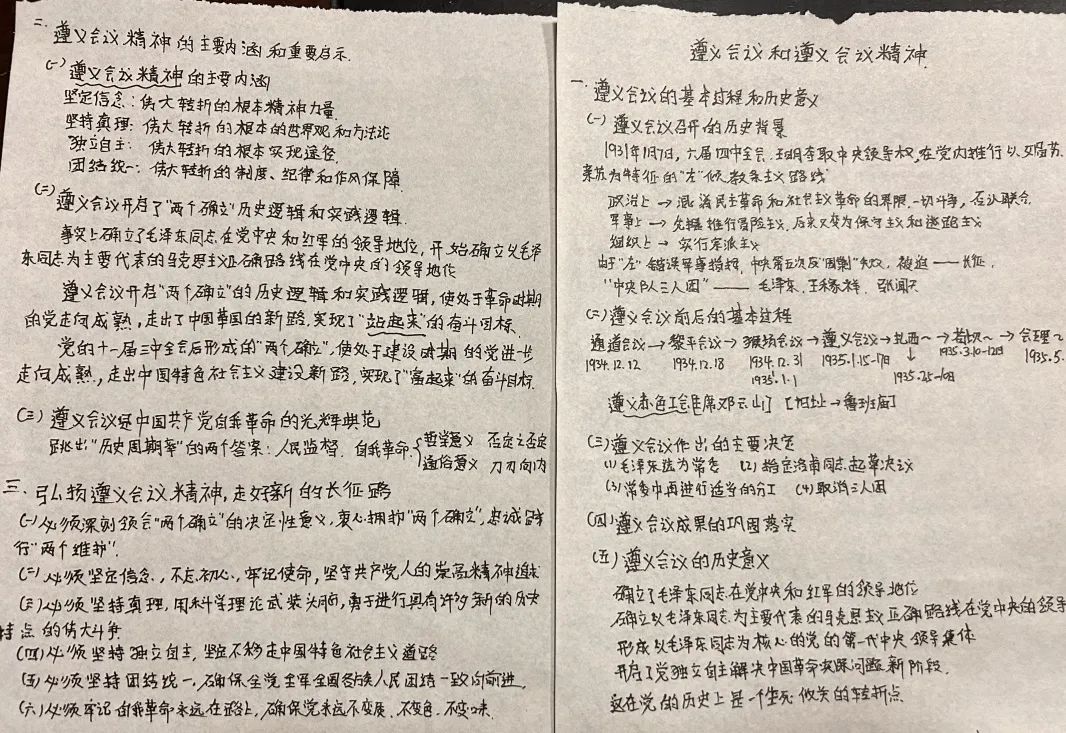 遵义会议和遵义会议精神
一. 遵义会议的基本过程和历史意义
(一) 遵义会议召开的历史背景
1931年1月7日, 六届四中全会, 王明夺取中央领导权, 在党内推行以
为特征的"左"倾教条主义路线
政治上→混淆民主革命和社会主义革命的界限. 一切斗争, 否认联合
军事上→先推行冒险主义, 后来又变为保守主义和逃跑主义
组织上→实行宗派主义
由于"左"错误军事指挥, 中央第五次反"围剿"失败, 被迫——长征,
"中央队三人团"——毛泽东、王稼祥、张闻天
(二) 遵义会议前后的基本过程
通道会议→黎平会议→猴场会议→遵义会议→扎西~→苟坝~→会理~
1934.12.12 1934.12.18 1934.12.31 1935.1.15-17日 ↓ 1935.3.10-12日 1935.5.
1935.1.1 1935.2.5-10日
遵义赤色工会主席邓云山] [旧址→鲁班庙]
(三) 遵义会议作出的主要决定
(1) 毛泽东选为常委 (2) 指定洛甫同志起草决议
(3) 常委中再进行适当的分工 (4) 取消三人团
(四) 遵义会议成果的巩固落实
(五) 遵义会议的历史意义
确立了毛泽东同志在党中央和红军的领导地位
确立以毛泽东同志为主要代表的马克思主义正确路线在党中央的领导
形成以毛泽东同志为核心的党的第一代中央领导集体
开启了党独立自主解决中国革命实际问题新阶段.
这在党的历史上是一个生死攸关的转折点
二. 遵义会议精神的主要内涵和重要启示.
(一) 遵义会议精神的主要内涵
坚定信念: 伟大转折的根本精神力量.
坚持真理: 伟大转折的根本的世界观和方法论
独立自主: 伟大转折的根本实现途径.
团结统一: 伟大转折的制度、纪律和作风保障.
(二) 遵义会议开启了"两个确立"历史逻辑和实践逻辑.
事实上确立了毛泽东同志在党中央和红军的领导地位, 开始确立以毛泽
东同志为主要代表的马克思主义正确路线在党中央的领导地位
遵义会议开启"两个确立"的历史逻辑和实践逻辑, 使处于革命时期
的党走向成熟, 走出了中国革国的新路. 实现了"站起来"的奋斗目标.
党的十一届三中全会后形成的"两个确立", 使处于建设时期的党进一步
走向成熟, 走出中国特色社会主义建设新路, 实现了"富起来"的奋斗目标.
(三) 遵义会议是中国共产党自我革命的光辉典范
跳出"历史周期率"的两个答案: 人民监督. 自我革命{哲学意义 否定之否定
通俗意义 刀刃向内
三. 弘扬遵义会议精神, 走好新的长征路
(一) 必须深刻领会"两个确立"的决定性意义, 衷心拥护"两个确立", 忠诚践
行"两个维护".
(二) 必须坚定信念, 不忘初心, 牢记使命, 坚守共产党人的崇高精神追求
(三) 必须坚持真理, 用科学理论武装头脑, 勇于进行具有许多新的历史
特点的伟大斗争
(四) 必须坚持独立自主, 坚定不移走中国特色社会主义道路
(五) 必须坚持团结统一, 确保全党全军全国各族人民团结一致向前进.
(六) 必须牢记自我革命永远在路上, 确保党永远不变质、不变色、不变味.